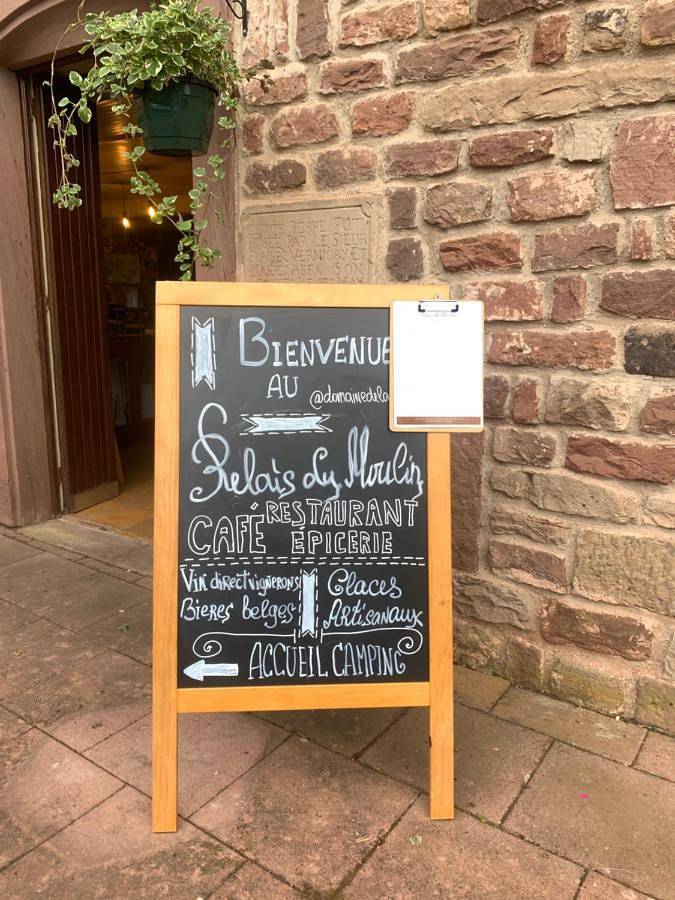 BIENVENUE
AU
Relais du Moulin
CAFÉ RESTAURANT
ÉPICERIE
Vin direct vignerons
Bieres belges
Glaces
Artisanaux
ACCUEIL CAMPING